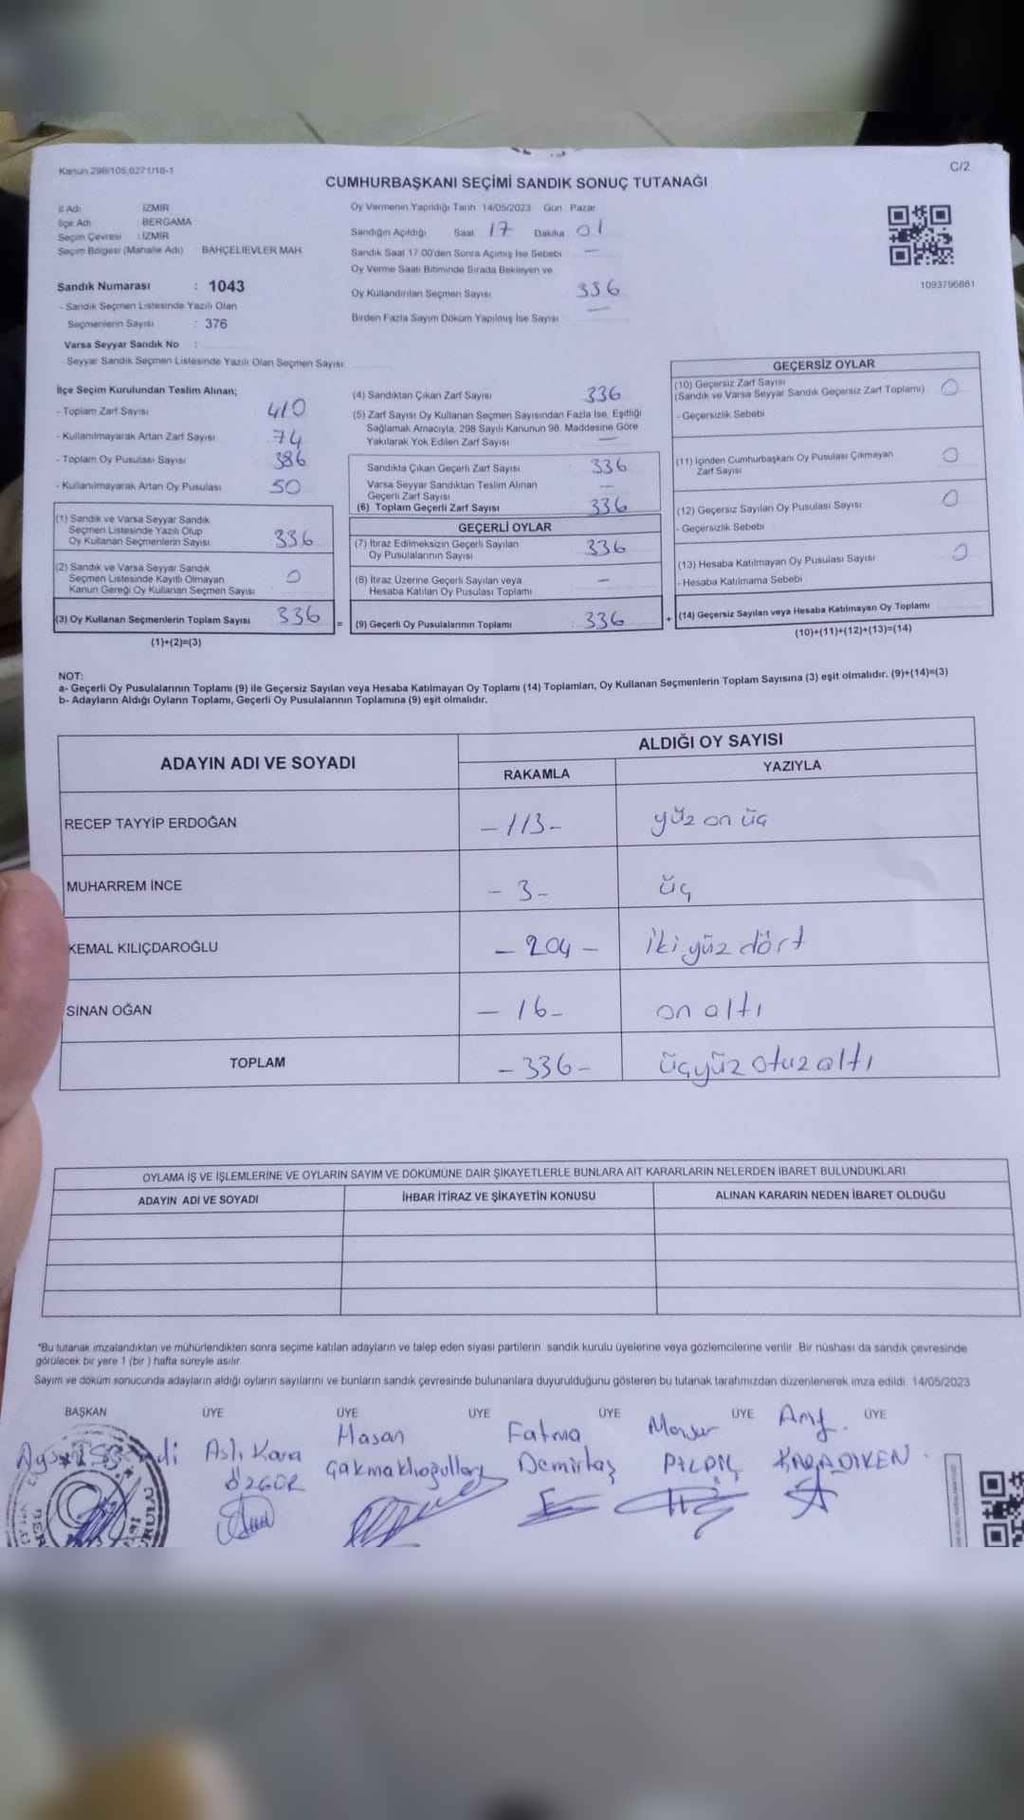 Kanun 298/105,6271/18-1
C/2
CUMHURBAŞKANI SEÇİMİ SANDIK SONUÇ TUTANAĞI
İl Adı : İZMİR
İlçe Adı : BERGAMA
Seçim Çevresi : İZMİR
Seçim Bölgesi (Mahalle Adı) BAHÇELİEVLER MAH.
Oy Vermenin Yapıldığı Tarih 14/05/2023 Gün Pazar
Sandığın Açıldığı Saat 17 Dakika 01
Sandık Saat 17.00'den Sonra Açılmış İse Sebebi —
Oy Verme Saati Bitiminde Sırada Bekleyen ve
Oy Kullandırılan Seçmen Sayısı 336
Birden Fazla Sayım Döküm Yapılmış İse Sayısı —
1093796881
Sandık Numarası : 1043
- Sandık Seçmen Listesinde Yazılı Olan
Seçmenlerin Sayısı : 376
Varsa Seyyar Sandık No :
- Seyyar Sandık Seçmen Listesinde Yazılı Olan Seçmen Sayısı:
İlçe Seçim Kurulundan Teslim Alınan;
- Toplam Zarf Sayısı 410
- Kullanılmayarak Artan Zarf Sayısı 74
- Toplam Oy Pusulası Sayısı 386
- Kullanılmayarak Artan Oy Pusulası 50
(1) Sandık ve Varsa Seyyar Sandık
Seçmen Listesinde Yazılı Olup
Oy Kullanan Seçmenlerin Sayısı 336
(2) Sandık ve Varsa Seyyar Sandık
Seçmen Listesinde Kayıtlı Olmayan
Kanun Gereği Oy Kullanan Seçmen Sayısı 0
(3) Oy Kullanan Seçmenlerin Toplam Sayısı 336
(1)+(2)=(3)
(4) Sandıktan Çıkan Zarf Sayısı 336
(5) Zarf Sayısı Oy Kullanan Seçmen Sayısından Fazla İse, Eşitliği
Sağlamak Amacıyla, 298 Sayılı Kanunun 98. Maddesine Göre
Yakılarak Yok Edilen Zarf Sayısı —
Sandıkta Çıkan Geçerli Zarf Sayısı 336
Varsa Seyyar Sandıktan Teslim Alınan
Geçerli Zarf Sayısı —
(6) Toplam Geçerli Zarf Sayısı 336
GEÇERLİ OYLAR
(7) İtiraz Edilmeksizin Geçerli Sayılan
Oy Pusulalarının Sayısı 336
(8) İtiraz Üzerine Geçerli Sayılan veya
Hesaba Katılan Oy Pusulası Toplamı —
= (9) Geçerli Oy Pusulalarının Toplamı 336
GEÇERSİZ OYLAR
(10) Geçersiz Zarf Sayısı
(Sandık ve Varsa Seyyar Sandık Geçersiz Zarf Toplamı) 0
- Geçersizlik Sebebi
(11) İçinden Cumhurbaşkanı Oy Pusulası Çıkmayan
Zarf Sayısı 0
(12) Geçersiz Sayılan Oy Pusulası Sayısı 0
- Geçersizlik Sebebi
(13) Hesaba Katılmayan Oy Pusulası Sayısı 0
- Hesaba Katılmama Sebebi
+ (14) Geçersiz Sayılan veya Hesaba Katılmayan Oy Toplamı
(10)+(11)+(12)+(13)=(14)
NOT:
a- Geçerli Oy Pusulalarının Toplamı (9) ile Geçersiz Sayılan veya Hesaba Katılmayan Oy Toplamı (14) Toplamları, Oy Kullanan Seçmenlerin Toplam Sayısına (3) eşit olmalıdır. (9)+(14)=(3)
b- Adayların Aldığı Oyların Toplamı, Geçerli Oy Pusulalarının Toplamına (9) eşit olmalıdır.
ADAYIN ADI VE SOYADI
ALDIĞI OY SAYISI
RAKAMLA YAZIYLA
RECEP TAYYİP ERDOĞAN -113- yüz on üç
MUHARREM İNCE -3- üç
KEMAL KILIÇDAROĞLU -204- iki yüz dört
SİNAN OĞAN -16- on altı
TOPLAM -336- üçyüz otuz altı
OYLAMA İŞ VE İŞLEMLERİNE VE OYLARIN SAYIM VE DÖKÜMÜNE DAİR ŞİKAYETLERLE BUNLARA AİT KARARLARIN NELERDEN İBARET BULUNDUKLARI
ADAYIN ADI VE SOYADI İHBAR İTİRAZ VE ŞİKAYETİN KONUSU ALINAN KARARIN NEDEN İBARET OLDUĞU
"Bu tutanak imzalandıktan ve mühürlendikten sonra seçime katılan adayların ve talep eden siyasi partilerin sandık kurulu üyelerine veya gözlemcilerine verilir. Bir nüshası da sandık çevresinde
görülecek bir yere 1 (bir ) hafta süreyle asılır.
Sayım ve döküm sonucunda adayların aldığı oyların sayılarını ve bunların sandık çevresinde bulunanlara duyurulduğunu gösteren bu tutanak tarafımızdan düzenlenerek imza edildi. 14/05/2023
BAŞKAN ÜYE ÜYE ÜYE ÜYE ÜYE ÜYE
Aslı Kara
ÖZGÜR
Hasan
Çakmaklıoğulları
Fatma
Demirtaş
KARADİKEN